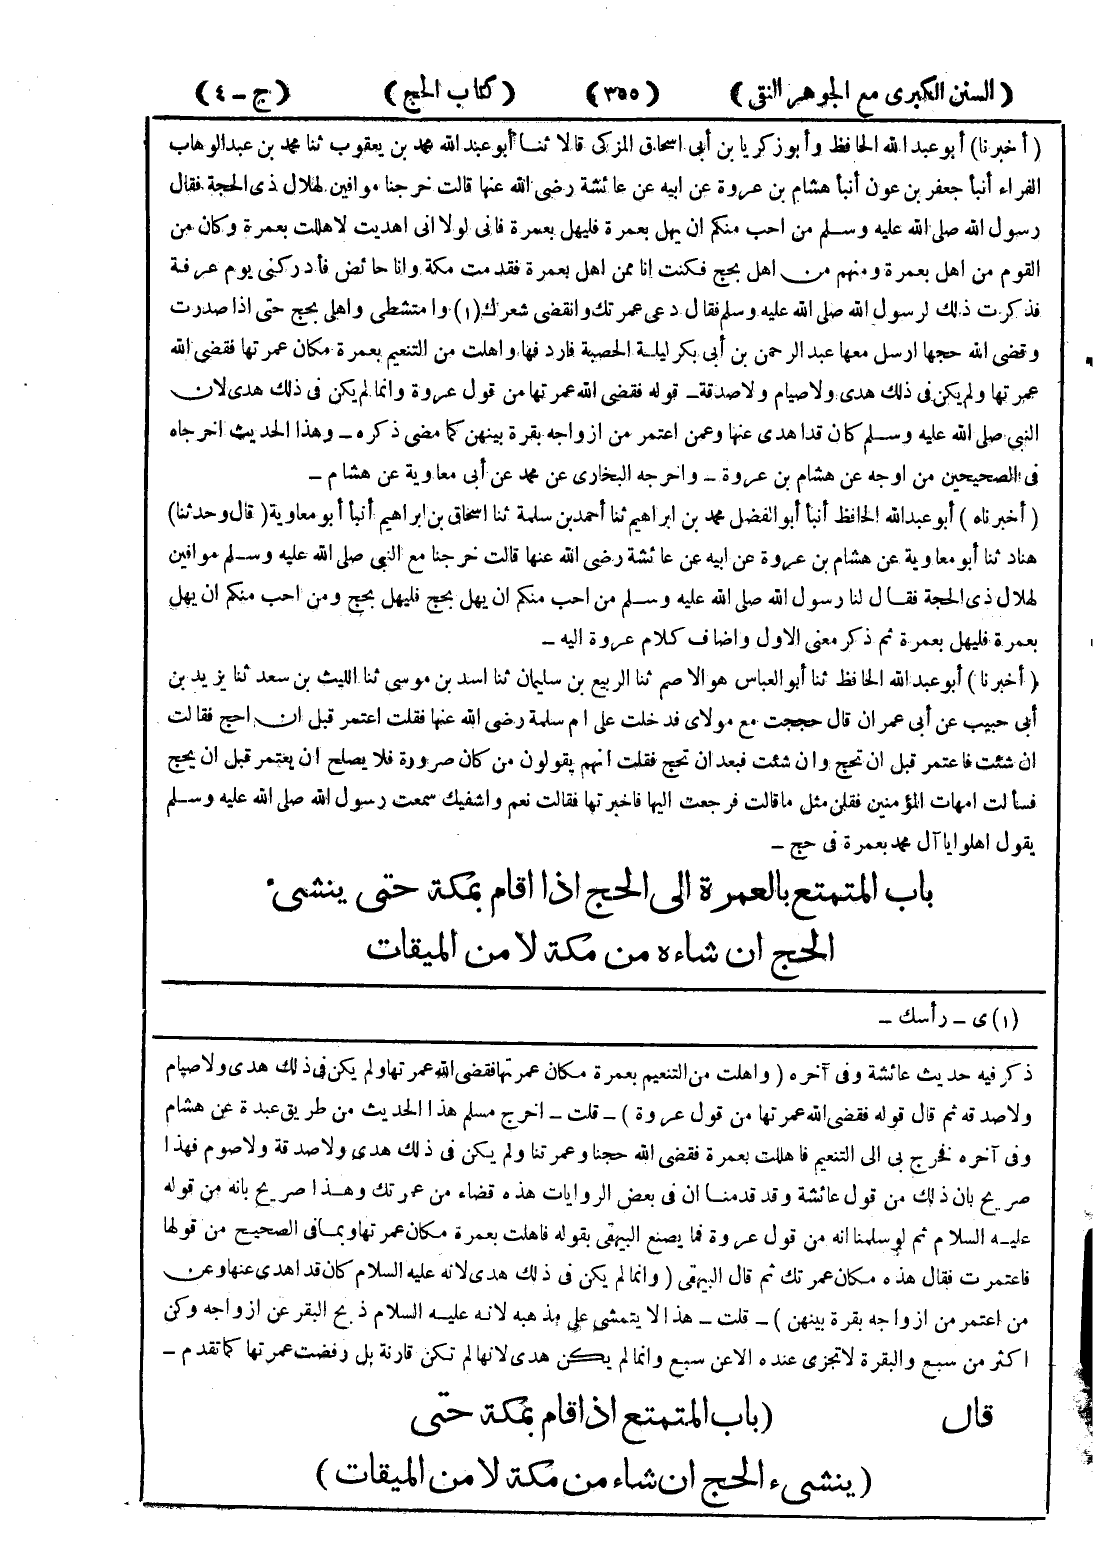 (السنن الكبرى مع الجوهر النقى) (٣٥٥) (كتاب الحج) (ج - ٤)
(أخبرنا) أبو عبد الله الحافظ وأبو زكريا بن أبى اسحاق المزكى قالا ثنا أبو عبد الله محمد بن يعقوب ثنا محمد بن عبد الوهاب
الفراء أنبأ جعفر بن عون أنبأ هشام بن عروة عن ابيه عن عائشة رضى الله عنها قالت خرجنا موافين لهلال ذى الحجة فقال
رسول الله صلى الله عليه وسلم من احب منكم ان يهل بعمرة فليهل بعمرة فانى لولا انى اهديت لاهللت بعمرة وكان من
القوم من اهل بعمرة ومنهم من اهل بحج فكنت انا ممن اهل بعمرة فقدمت مكة وانا حائض فأدركنى يوم عرفة
فذكرت ذلك لرسول الله صلى الله عليه وسلم فقال دعى عمرتك وانقضى شعرك (١) وامتشطى واهلى بحج حتى اذا صدرت
وقضى الله حجها ارسل معها عبد الرحمن بن أبى بكر ليلة الحصبة فاردفها واهلت من التنعيم بعمرة مكان عمرتها فقضى الله
عمرتها ولم يكن فى ذلك هدى ولا صيام ولا صدقة - قوله فقضى الله عمرتها من قول عروة وانما لم يكن فى ذلك هدى لان
النبى صلى الله عليه وسلم كان قد اهدى عنها وعمن اعتمر من ازواجه بقرة بينهن كما مضى ذكره - وهذا الحديث اخرجاه
فى الصحيحين من اوجه عن هشام بن عروة - واخرجه البخارى عن محمد عن أبى معاوية عن هشام -
(أخبرناه) أبو عبد الله الحافظ أنبأ أبو الفضل محمد بن ابراهيم ثنا أحمد بن سلمة ثنا اسحاق بن ابراهيم أنبأ أبو معاوية (قال وحدثنا)
هناد ثنا أبو معاوية عن هشام بن عروة عن ابيه عن عائشة رضى الله عنها قالت خرجنا مع النبى صلى الله عليه وسلم موافين
لهلال ذى الحجة فقال لنا رسول الله صلى الله عليه وسلم من احب منكم ان يهل بحج فليهل بحج ومن احب منكم ان يهل
بعمرة فليهل بعمرة ثم ذكر معنى الاول واضاف كلام عروة اليه -
(أخبرنا) أبو عبد الله الحافظ ثنا أبو العباس هو الاصم ثنا الربيع بن سليمان ثنا اسد بن موسى ثنا الليث بن سعد ثنا يزيد بن
أبى حبيب عن أبى عمران قال حججت مع مولاى فدخلت على ام سلمة رضى الله عنها فقلت اعتمر قبل ان احج فقالت
ان شئت فاعتمر قبل ان تحج وان شئت فبعد ان تحج فقلت انهم يقولون من كان صرورة فلا يصلح ان يعتمر قبل ان يحج
فسألت امهات المؤمنين فقلن مثل ما قالت فرجعت اليها فاخبرتها فقالت نعم واشفيك سمعت رسول الله صلى الله عليه وسلم
يقول اهلوا يا آل محمد بعمرة فى حج -
باب المتمتع بالعمرة الى الحج اذا اقام بمكة حتى ينشىء
الحج ان شاءه من مكة لا من الميقات
(١) ى - رأسك -
ذكر فيه حديث عائشة وفى آخره (واهلت من التنعيم بعمرة مكان عمرتها فقضى الله عمرتها ولم يكن فى ذلك هدى ولا صيام
ولا صدقه ثم قال قوله فقضى الله عمرتها من قول عروة) - قلت - اخرج مسلم هذا الحديث من طريق عبدة عن هشام
وفى آخره فخرج بى الى التنعيم فاهللت بعمرة فقضى الله حجنا وعمرتنا ولم يكن فى ذلك هدى ولا صدقة ولا صوم فهذا
صريح بان ذلك من قول عائشة وقد قدمنا ان فى بعض الروايات هذه قضاء من عمرتك وهذا صريح بانه من قوله
عليه السلام ثم لو سلمنا انه من قول عروة فما يصنع البيهقى بقوله فاهلت بعمرة مكان عمرتها وبما فى الصحيح من قولها
فاعتمرت فقال هذه مكان عمرتك ثم قال البيهقى (وانما لم يكن فى ذلك هدى لانه عليه السلام كان قد اهدى عنها وعن
من اعتمر من ازواجه بقرة بينهن) - قلت - هذا لا يتمشى على مذهبه لانه عليه السلام ذبح البقر عن ازواجه وكن
اكثر من سبع والبقرة لا تجزى عنده الا عن سبع وانما لم يكن هدى لانها لم تكن قارنة بل رفضت عمرتها كما تقدم -
قال (باب المتمتع اذا اقام بمكة حتى
(ينشىء الحج ان شاء من مكة لا من الميقات)